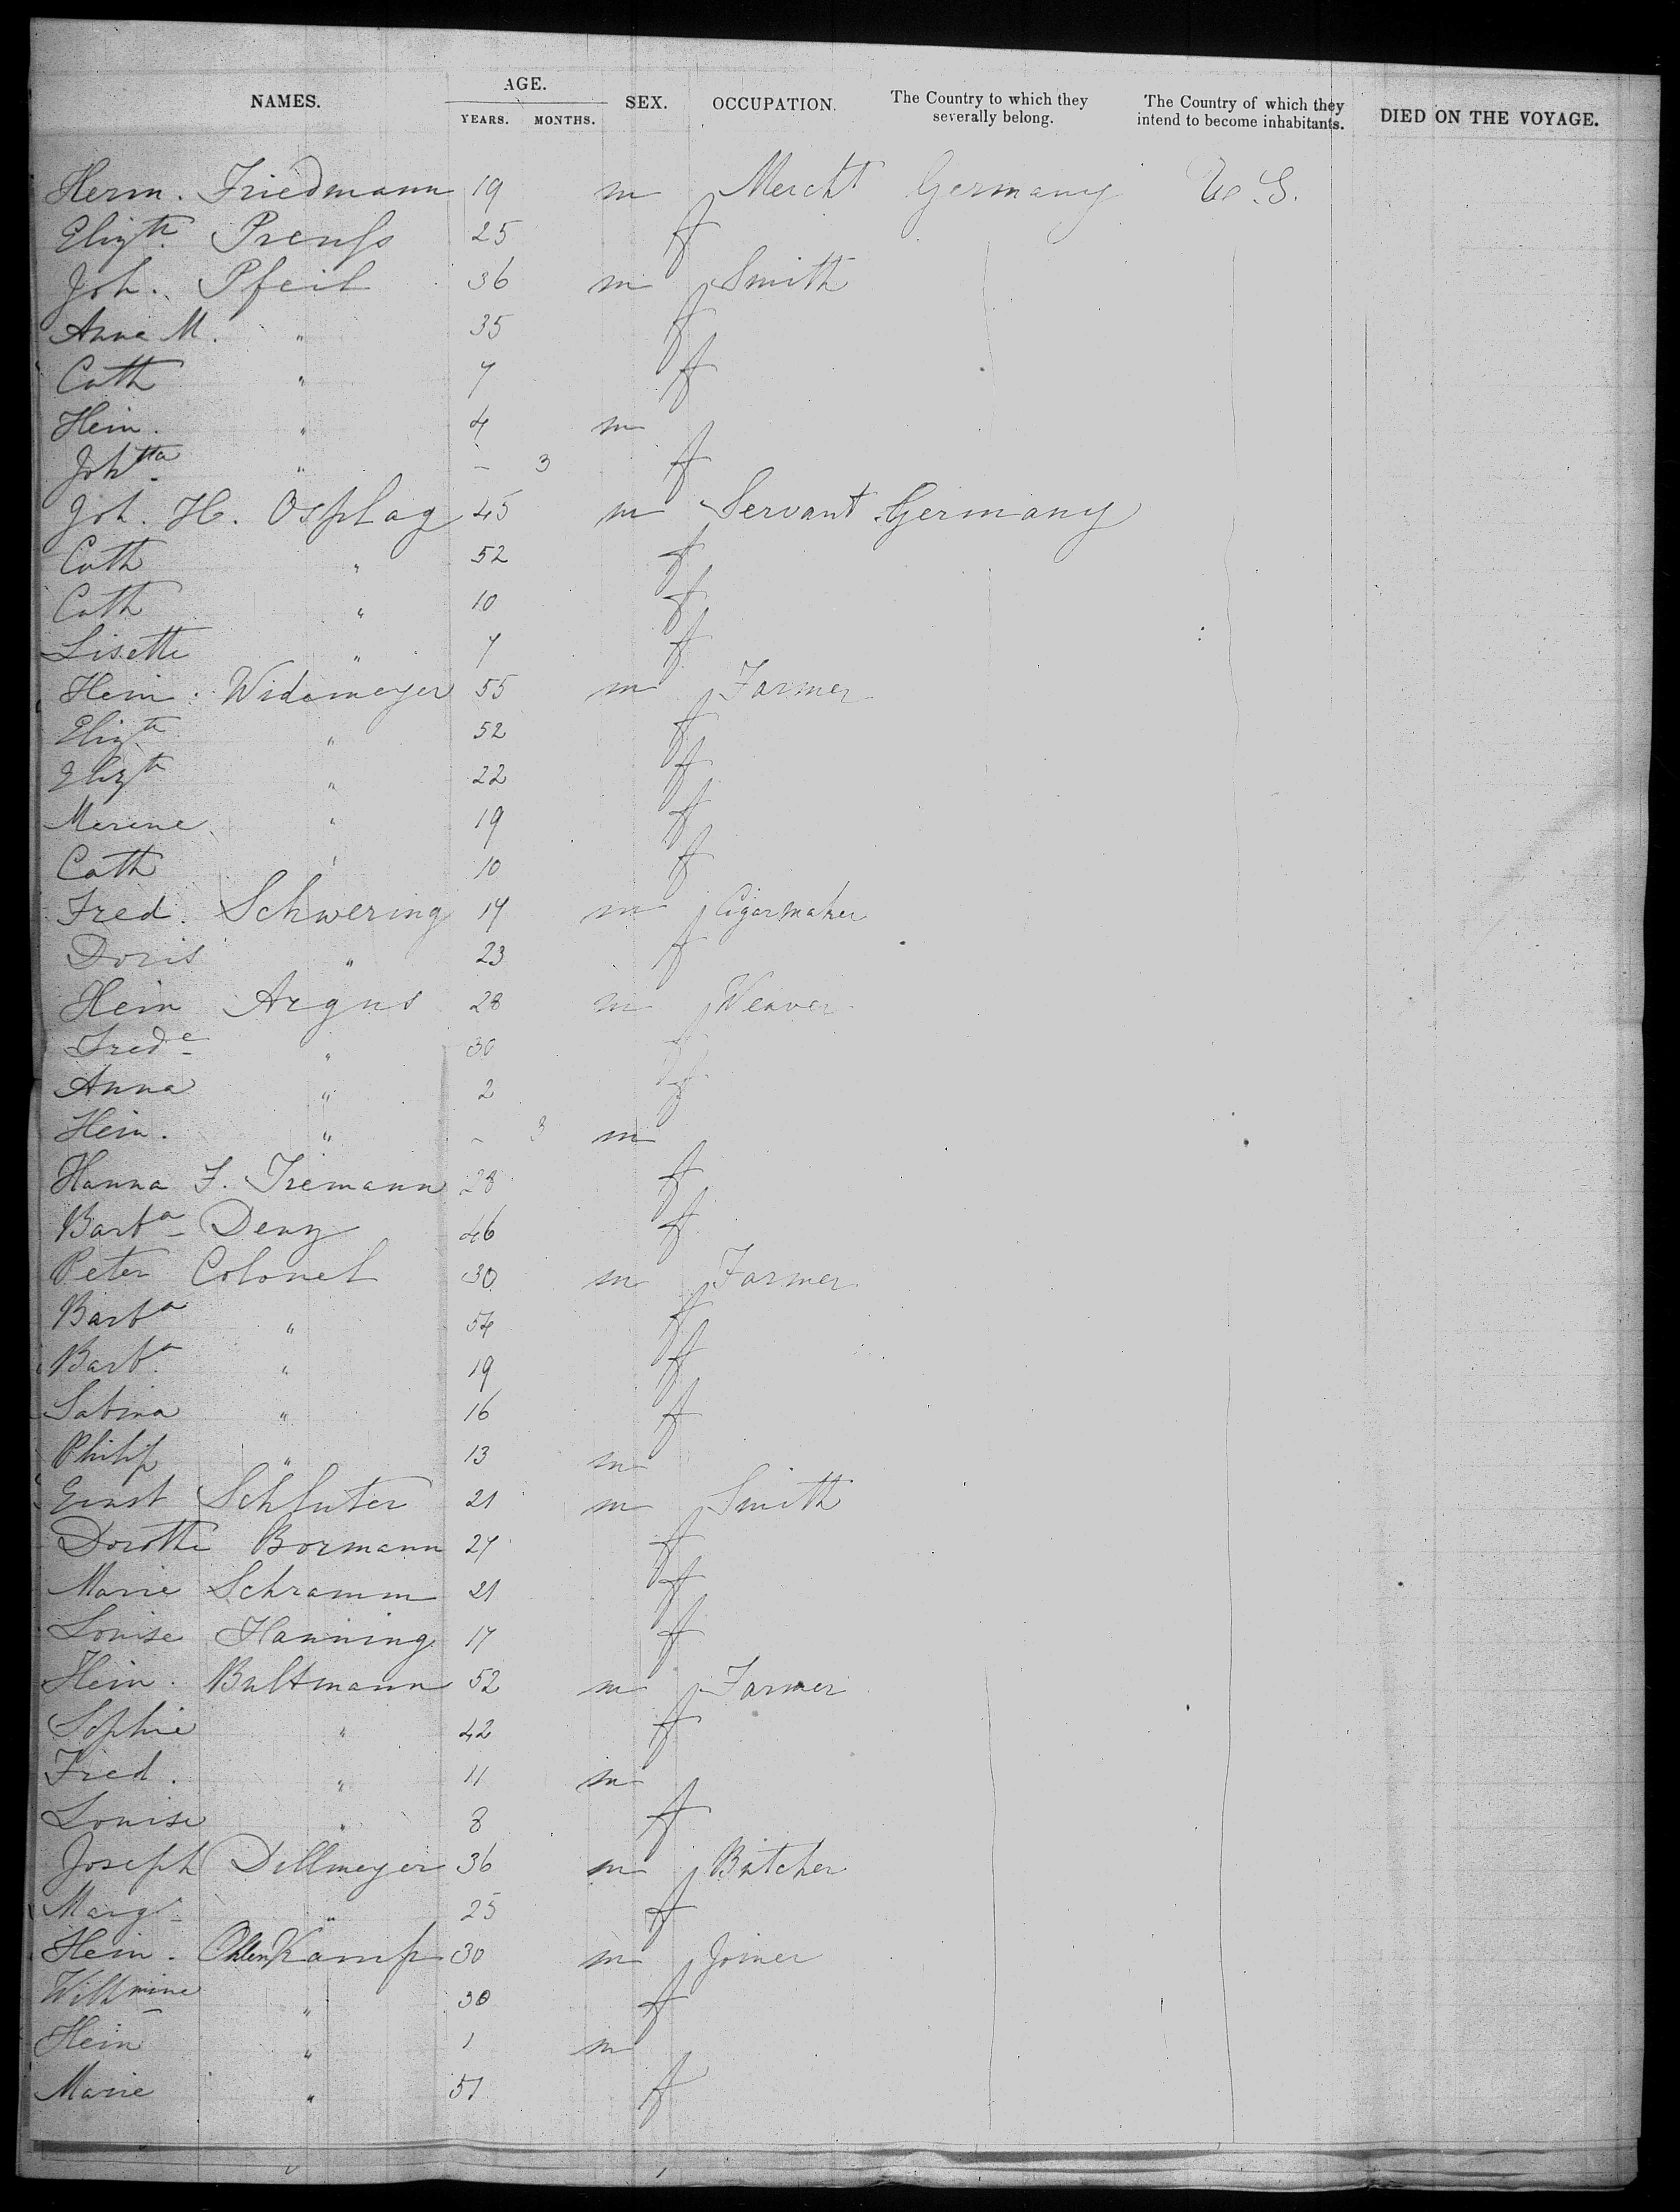 NAMES. AGE. YEARS. MONTHS. SEX. OCCUPATION. The Country to which they severally belong. The Country of which they intend to become inhabitants. DIED ON THE VOYAGE.
Herm. Friedmann 19 m Mercht Germany U.S.
Elizth. Preuss 25 f
Joh. Pfeil 36 m Smith
Anna M. " 35 f
Cath " 7 f
Hein. " 4 m
Johtta " – 3 f
Joh. H. Osplag 45 m Servant Germany
Cath " 52 f
Cath " 10 f
Lisette " 7 f
Hein. Widemeyer 55 m Farmer
Elizth " 52 f
Elizth " 22 f
Merene " 19 f
Cath " 10 f
Fred. Schwering 17 m Cigarmaker
Doris " 23 f
Hein Argus 28 m Weaver
Frede " 30 f
Anna " 2 f
Hein. " – 3 m
Hanna F. Tiemann 28 f
Barba Denz 46 f
Peter Colonel 30 m Farmer
Barba " 54 f
Barba " 19 f
Sabina " 16 f
Philip " 13 m
Ernst Schluter 21 m Smith
Dorothe Bormann 27 f
Marie Schramm 21 f
Louise Hanning 17 f
Hein. Bultmann 52 m Farmer
Sophie " 42 f
Fred. " 11 m
Louise " 8 f
Joseph Dillmeyer 36 m Butcher
Marg " 25 f
Hein. OhlenKamp 30 m Joiner
Willmine " 30 f
Hein " 1 m
Marie " 51 f